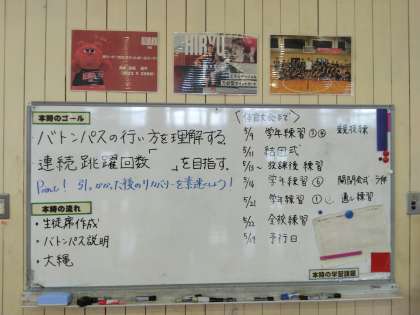 HIRYU
本時のゴール
バトンパスの行い方を理解する
連続跳躍回数「 」を目指す.
Point! 引っかかった後のリカバリーを素速くしよう!
本時の流れ
・生徒席作成
・バトンパス説明
・大縄
(体育大会まで)
5/9 学年練習③④ 競技練
5/11 結団式
5/13~ 放課後練習
5/14 学年練習⑥ 開閉会式
5/21 学年練習① 通し練習
5/22 全校練習
予行日
本時の学習課題